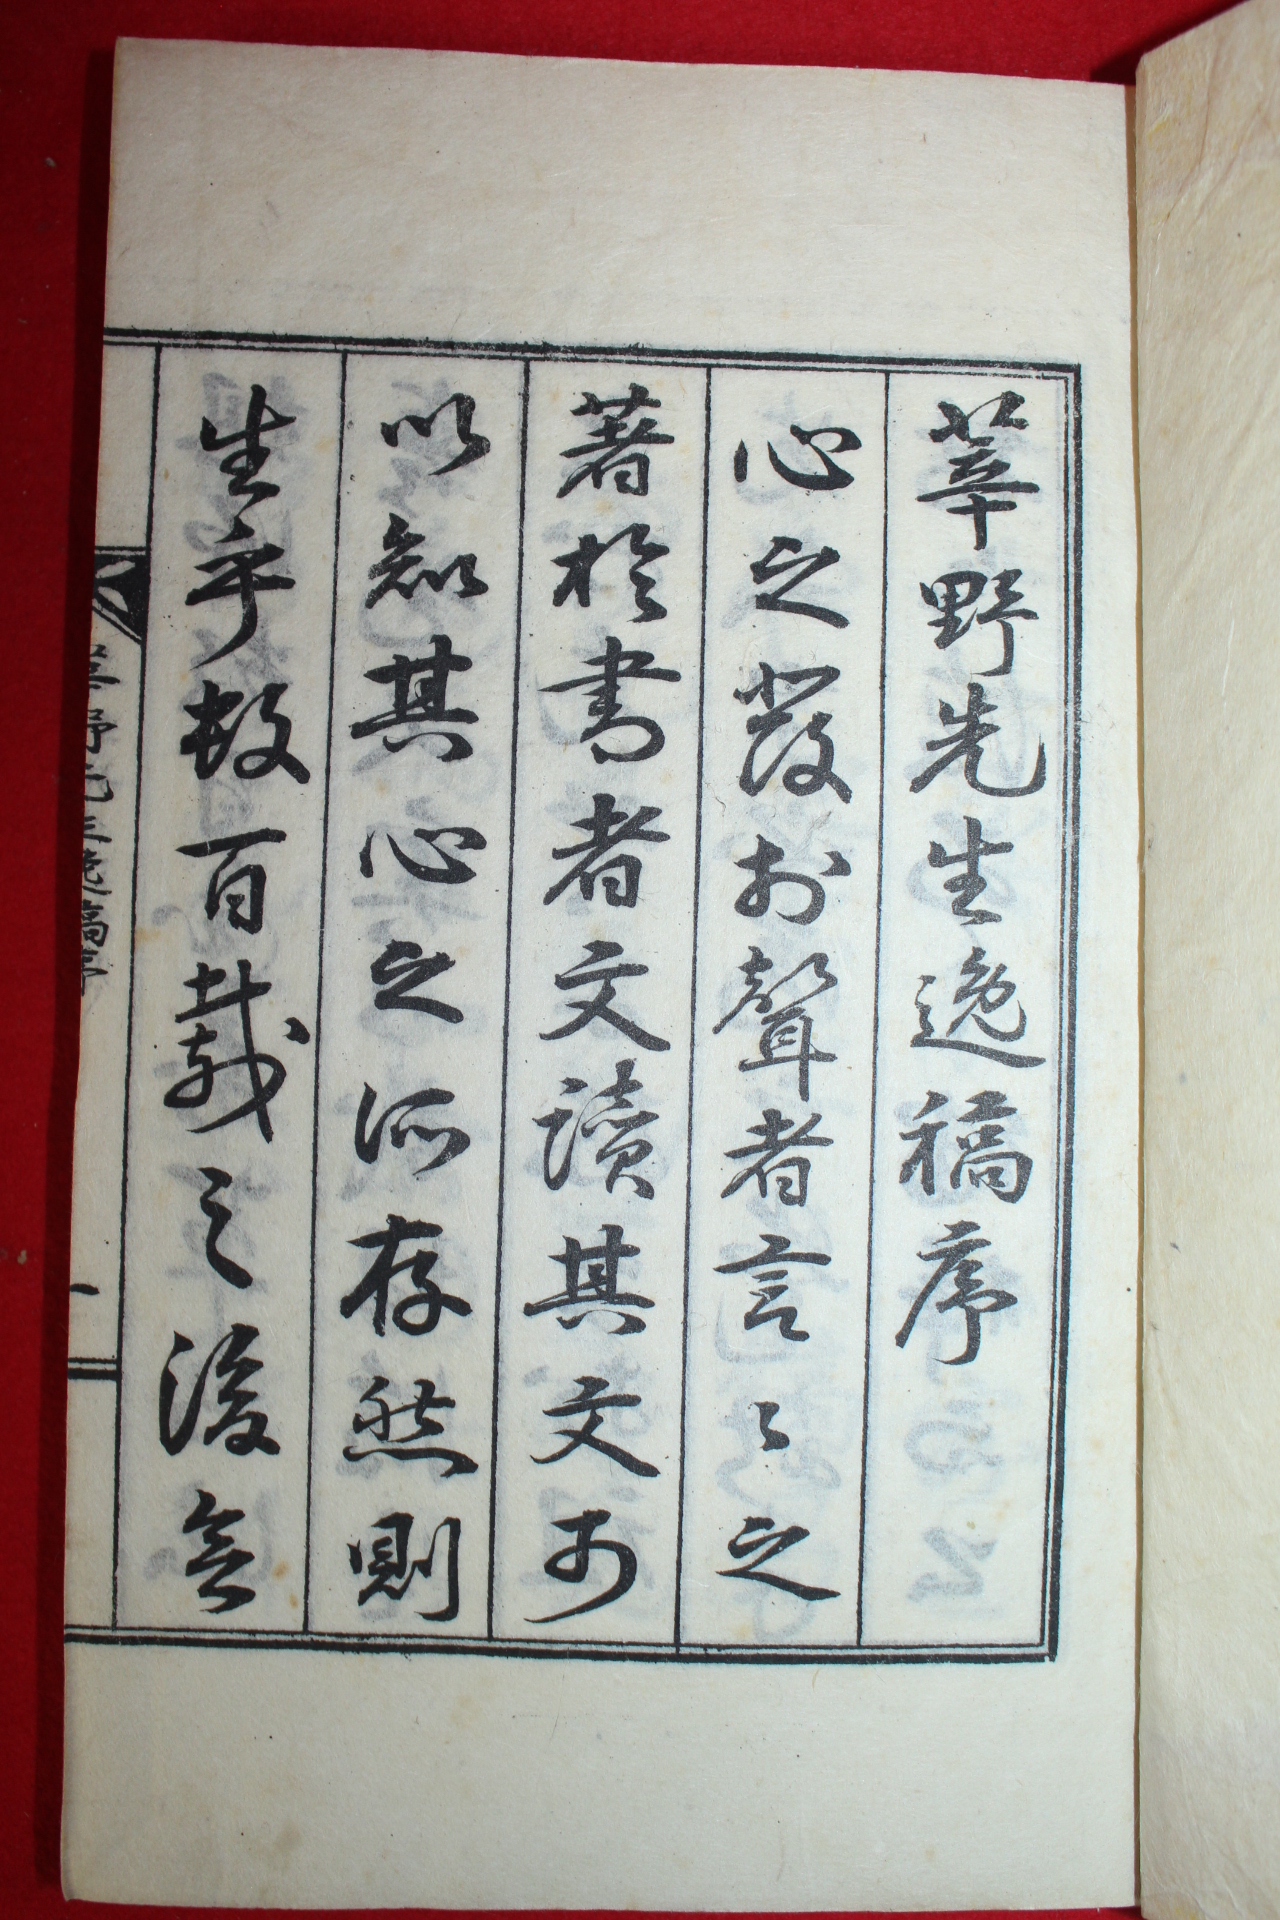 莘野先生逸稿序
心之發於聲者言〻之
著於書者文讀其文可
以知其心之所存然則
生乎數百載之後無
莘野先生逸稿序
一